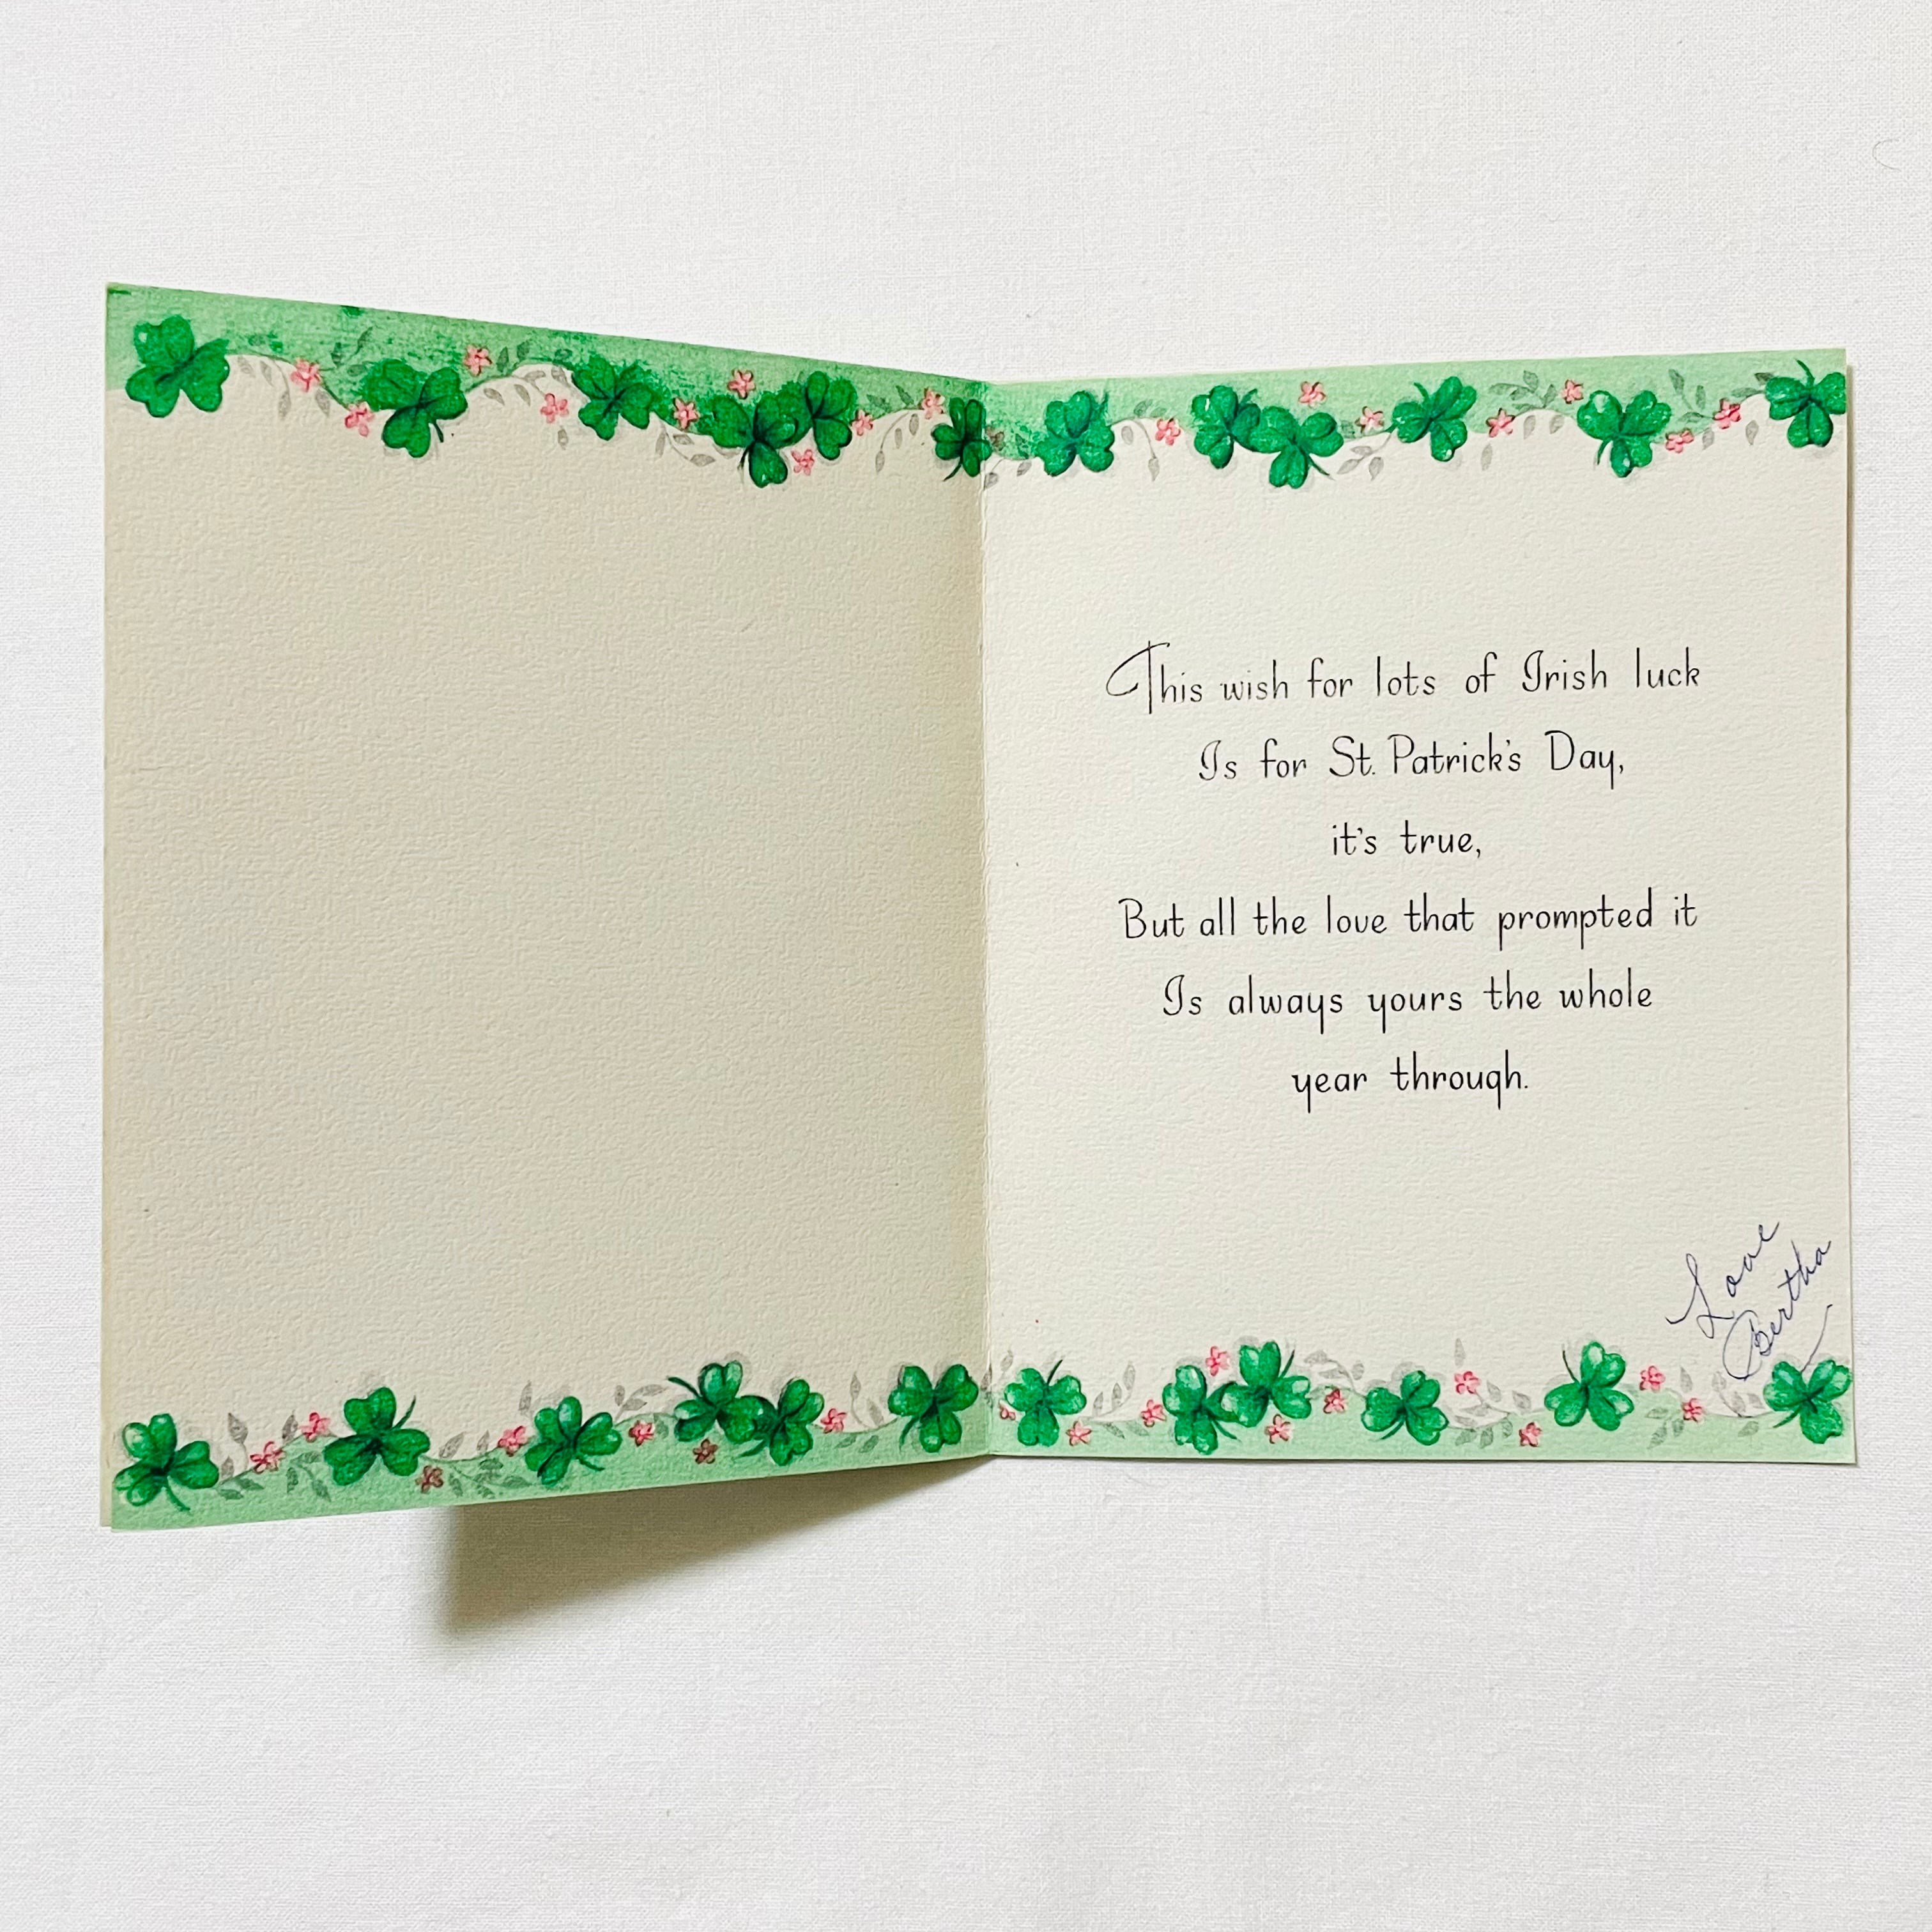 This wish for lots of Irish luck
Is for St. Patrick's Day,
it's true,
But all the love that prompted it
Is always yours the whole
year through.
Love
Bertha